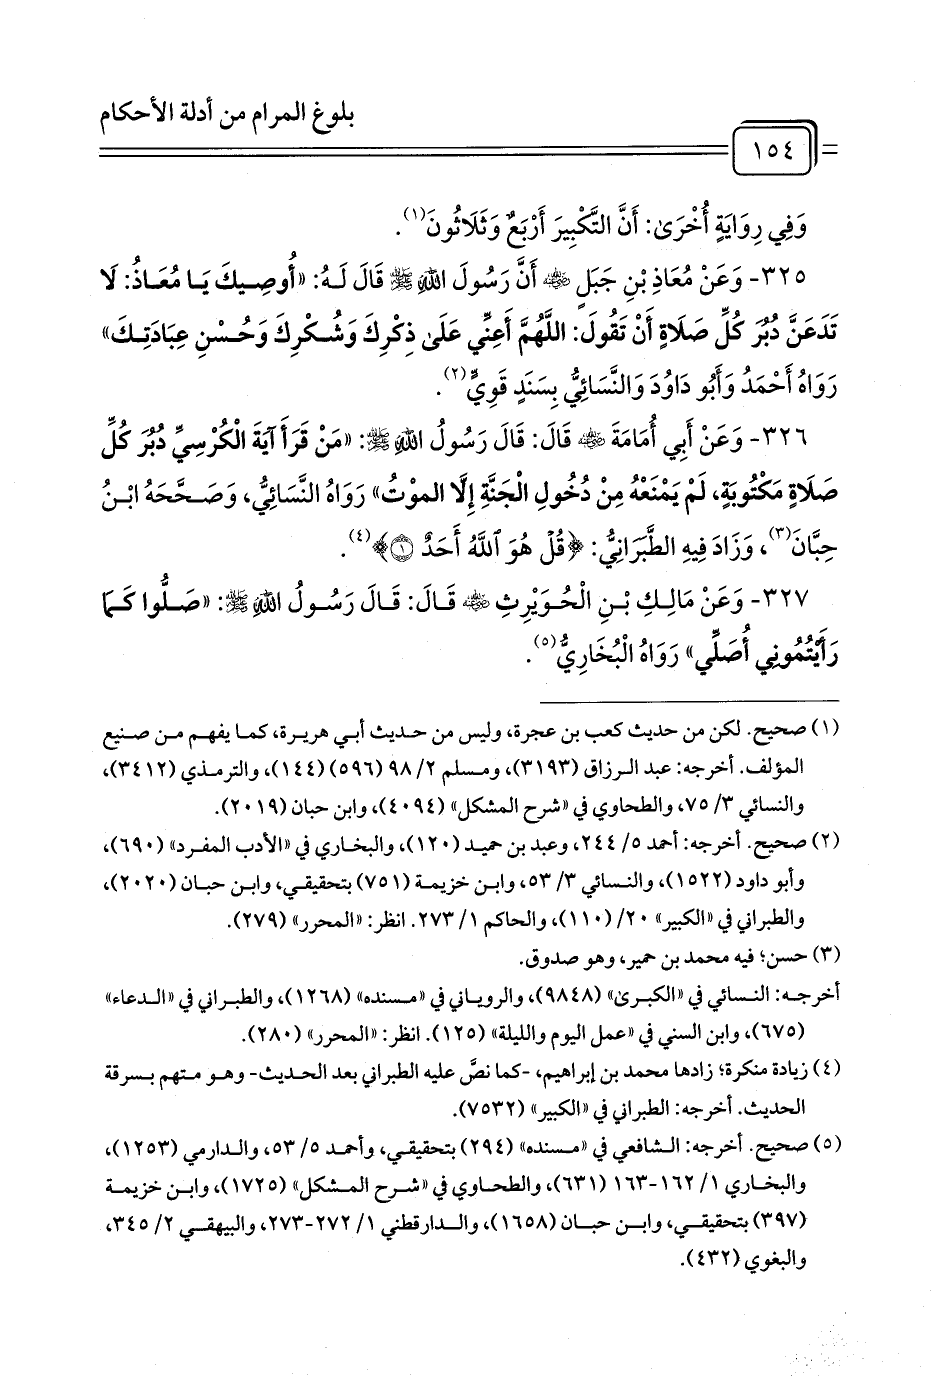 بلوغ المرام من أدلة الأحكام
١٥٤
وَفِي رِوَايَةٍ أُخْرَىٰ: أَنَّ التَّكْبِيرَ أَرْبَعٌ وَثَلَاثُونَ(١).
٣٢٥- وَعَنْ مُعَاذِ بْنِ جَبَلٍ ﵁ أَنَّ رَسُولَ اللهِ ﷺ قَالَ لَهُ: «أُوصِيكَ يَا مُعَاذُ: لَا
تَدَعَنَّ دُبُرَ كُلِّ صَلَاةٍ أَنْ تَقُولَ: اللَّهُمَّ أَعِنِّي عَلَىٰ ذِكْرِكَ وَشُكْرِكَ وَحُسْنِ عِبَادَتِكَ»
رَوَاهُ أَحْمَدُ وَأَبُو دَاوُدَ وَالنَّسَائِيُّ بِسَنَدٍ قَوِيٍّ(٢).
٣٢٦- وَعَنْ أَبِي أُمَامَةَ ﵁ قَالَ: قَالَ رَسُولُ اللهِ ﷺ: «مَنْ قَرَأَ آيَةَ الْكُرْسِيِّ دُبُرَ كُلِّ
صَلَاةٍ مَكْتُوبَةٍ، لَمْ يَمْنَعْهُ مِنْ دُخُولِ الْجَنَّةِ إِلَّا الموْتُ» رَوَاهُ النَّسَائِيُّ، وَصَحَّحَهُ ابْنُ
حِبَّانَ(٣)، وَزَادَ فِيهِ الطَّبَرَانِيُّ: ﴿قُلْ هُوَ ٱللَّهُ أَحَدٌ ١﴾(٤).
٣٢٧- وَعَنْ مَالِكِ بْنِ الْحُوَيْرِثِ ﵁ قَالَ: قَالَ رَسُولُ اللهِ ﷺ: «صَلُّوا كَمَا
رَأَيْتُمُونِي أُصَلِّي» رَوَاهُ الْبُخَارِيُّ(٥).
(١) صحيح. لكن من حديث كعب بن عجرة، وليس من حديث أبي هريرة، كما يفهم من صنيع
المؤلف. أخرجه: عبد الرزاق (٣١٩٣)، ومسلم ٢/ ٩٨ (٥٩٦) (١٤٤)، والترمذي (٣٤١٢)،
والنسائي ٣/ ٧٥، والطحاوي في «شرح المشكل» (٤٠٩٤)، وابن حبان (٢٠١٩).
(٢) صحيح. أخرجه: أحمد ٥/ ٢٤٤، وعبد بن حميد (١٢٠)، والبخاري في «الأدب المفرد» (٦٩٠)،
وأبو داود (١٥٢٢)، والنسائي ٣/ ٥٣، وابن خزيمة (٧٥١) بتحقيقي، وابن حبان (٢٠٢٠)،
والطبراني في «الكبير» ٢٠/ (١١٠)، والحاكم ١/ ٢٧٣. انظر: «المحرر» (٢٧٩).
(٣) حسن؛ فيه محمد بن حمير، وهو صدوق.
أخرجه: النسائي في «الكبرىٰ» (٩٨٤٨)، والروياني في «مسنده» (١٢٦٨)، والطبراني في «الدعاء»
(٦٧٥)، وابن السني في «عمل اليوم والليلة» (١٢٥). انظر: «المحرر» (٢٨٠).
(٤) زيادة منكرة؛ زادها محمد بن إبراهيم، -كما نصَّ عليه الطبراني بعد الحديث- وهو متهم بسرقة
الحديث. أخرجه: الطبراني في «الكبير» (٧٥٣٢).
(٥) صحيح. أخرجه: الشافعي في «مسنده» (٢٩٤) بتحقيقي، وأحمد ٥/ ٥٣، والدارمي (١٢٥٣)،
والبخاري ١/ ١٦٢-١٦٣ (٦٣١)، والطحاوي في «شرح المشكل» (١٧٢٥)، وابن خزيمة
(٣٩٧) بتحقيقي، وابن حبان (١٦٥٨)، والدارقطني ١/ ٢٧٢-٢٧٣، والبيهقي ٢/ ٣٤٥،
والبغوي (٤٣٢).